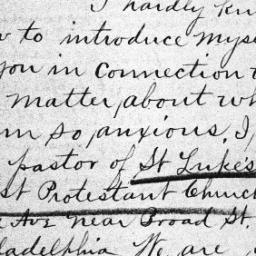 I hardly kn
to introduce myse
you in connection
matter, about wh
m so anxious. I
pastor of St Luke's
st Protestant Church
Ave near Broad St.
ladelphia We are